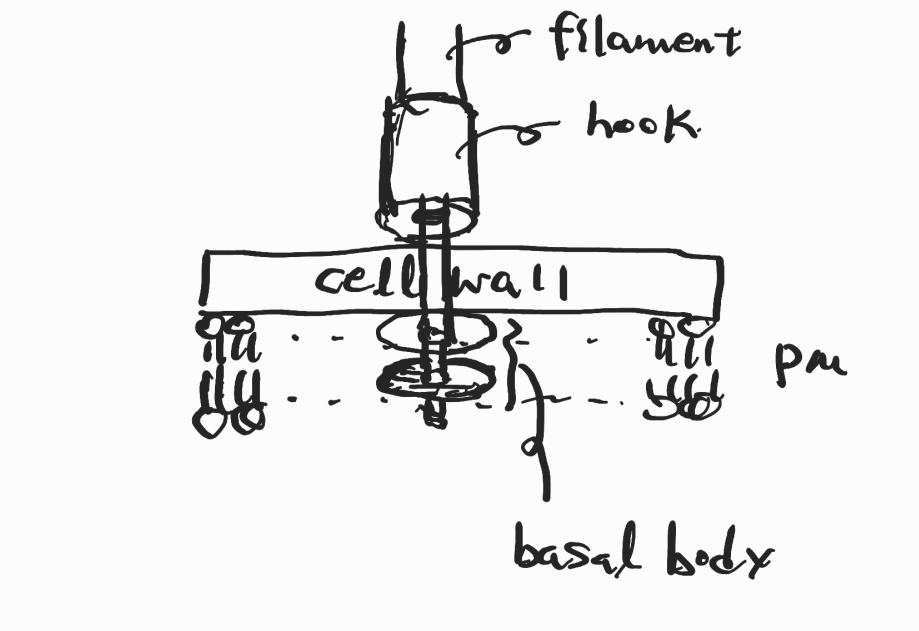 filament
hook
cell wall
pm
basal body